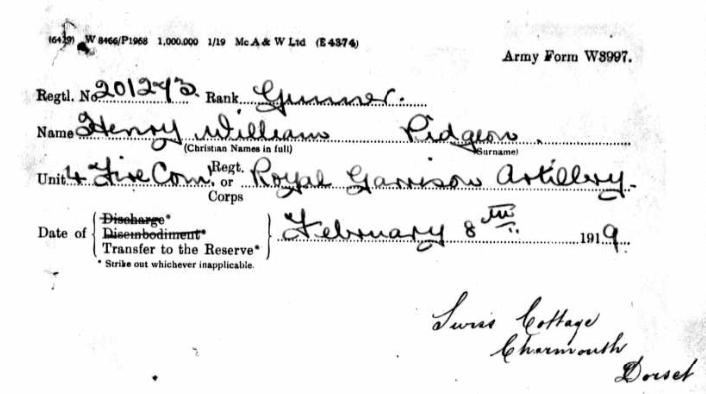 (6429) W 8466/P1968 1,000,000 1/19 McA & W Ltd (E 4374)
Army Form W3997.
Regtl. No 201273 Rank Gunner.
Name Henry William Pidgeon.
(Christian Names in full) (Surname)
Unit 4 Fire Com. Regt. or Corps Royal Garrison Artillery.
Date of { Discharge* Disembodiment* Transfer to the Reserve* } February 8th 1919
* Strike out whichever inapplicable.
Swiss Cottage
Charmouth
Dorset